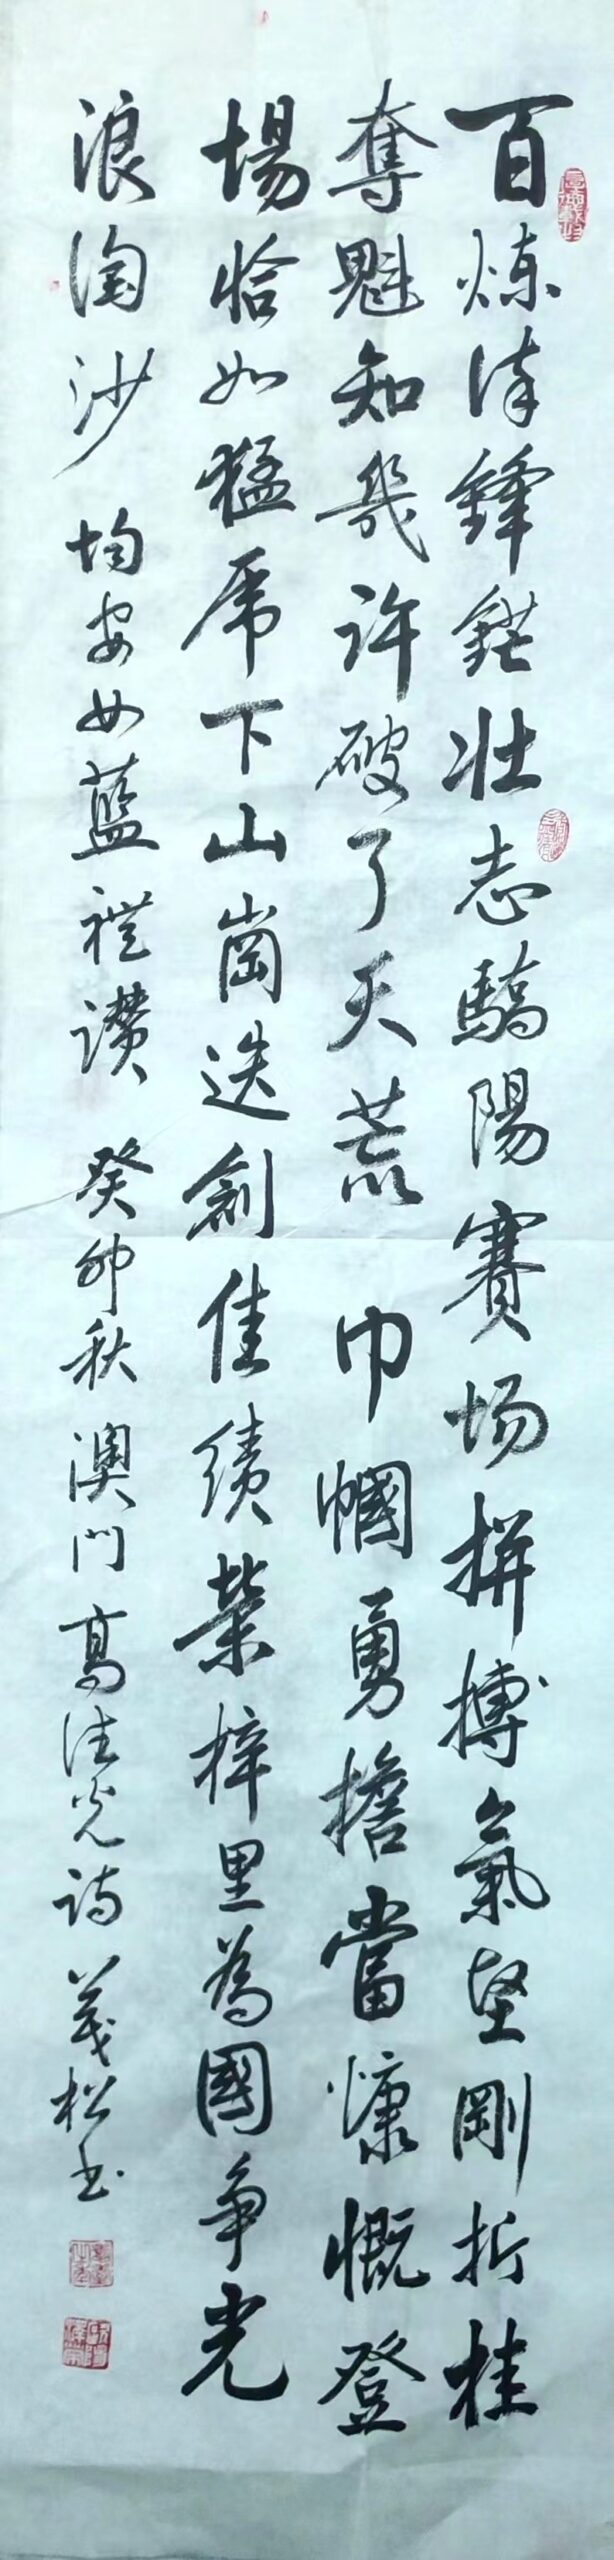 百煉淬鋒鋩壯志驕陽賽场拼搏氣堅剛折桂
奪魁知幾許破了天荒 巾幗勇擔當慷慨登
場恰如猛虎下山崗迭創佳績榮梓里為國爭光
浪淘沙 均安女藍禮讚 癸卯秋 澳門 高佳光詩 義松书